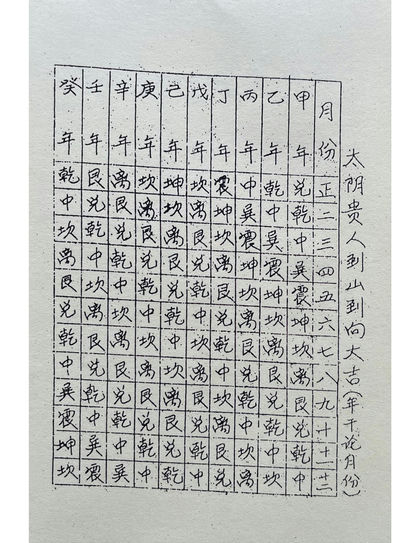 太阴贵人到山到向大吉(年干论月份)
月份正二三四五六七八九十十一十二
甲年兑乾中巽震坤坎离艮兑乾中
乙年乾中巽震坤坎离艮兑乾中坎
丙年中巽震坤坎离艮兑乾中坎离
丁年震坤坎离艮兑乾中坎离艮兑
戊年坎离艮兑乾中坎离艮兑乾中
己年坤坎离艮兑乾中坎离艮兑乾
庚年坎离艮兑乾中坎离艮兑乾中
辛年离艮兑乾中坎离艮兑乾中巽
壬年艮兑乾中坎离艮兑乾中巽震
癸年乾中坎离艮兑乾中巽震坤坎